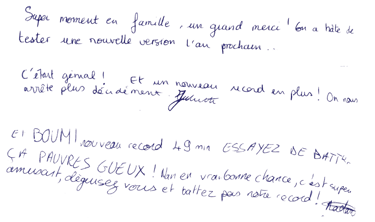 Super moment en famille, un grand merci ! On a hâte de
tester une nouvelle version l'an prochain...
C'était génial ! Et un nouveau record en plus ! On nous
arrête plus décidément
Et BOUM ! nouveau record 49 min ESSAYEZ DE BATTRE
ÇA PAUVRES GUEUX ! Non en vrai bonne chance, c'est super
amusant, déguisez vous et battez pas notre record !